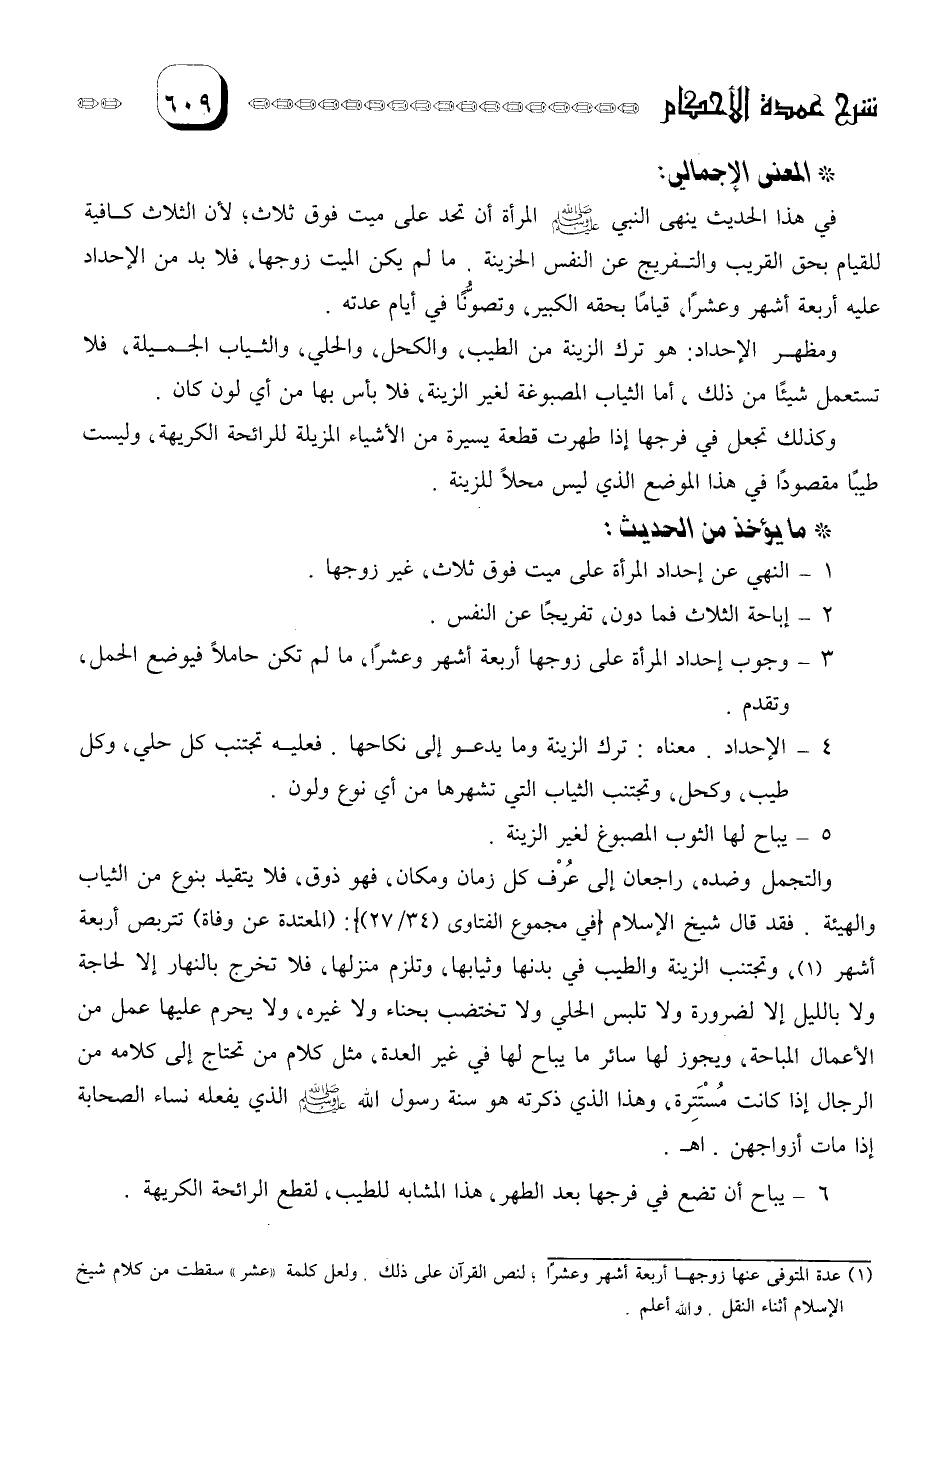 شرح عمدة الأحكام ٦٠٩
* المعنى الإجمالي:
في هذا الحديث ينهى النبي ﷺ المرأة أن تحد على ميت فوق ثلاث؛ لأن الثلاث كافية
للقيام بحق القريب والتفريج عن النفس الحزينة . ما لم يكن الميت زوجها، فلا بد من الإحداد
عليه أربعة أشهر وعشرًا، قيامًا بحقه الكبير، وتصوُّنًا في أيام عدته .
ومظهر الإحداد: هو ترك الزينة من الطيب، والكحل، والحلي، والثياب الجميلة، فلا
تستعمل شيئًا من ذلك ، أما الثياب المصبوغة لغير الزينة، فلا بأس بها من أي لون كان .
وكذلك تجعل في فرجها إذا طهرت قطعة يسيرة من الأشياء المزيلة للرائحة الكريهة، وليست
طيبًا مقصودًا في هذا الموضع الذي ليس محلاً للزينة .
* ما يؤخذ من الحديث :
١ - النهي عن إحداد المرأة على ميت فوق ثلاث، غير زوجها .
٢ - إباحة الثلاث فما دون، تفريجًا عن النفس .
٣ - وجوب إحداد المرأة على زوجها أربعة أشهر وعشرًا، ما لم تكن حاملاً فبوضع الحمل،
وتقدم .
٤ - الإحداد . معناه : ترك الزينة وما يدعو إلى نكاحها . فعليه تجتنب كل حلي، وكل
طيب، وكحل، وتجتنب الثياب التي تشهرها من أي نوع ولون .
٥ - يباح لها الثوب المصبوغ لغير الزينة .
والتجمل وضده، راجعان إلى عُرْف كل زمان ومكان، فهو ذوق، فلا يتقيد بنوع من الثياب
والهيئة . فقد قال شيخ الإسلام {في مجموع الفتاوى (٢٧/٣٤)}: (المعتدة عن وفاة) تتربص أربعة
أشهر (١)، وتجتنب الزينة والطيب في بدنها وثيابها، وتلزم منزلها، فلا تخرج بالنهار إلا لحاجة
ولا بالليل إلا لضرورة ولا تلبس الحلي ولا تختضب بحناء ولا غيره، ولا يحرم عليها عمل من
الأعمال المباحة، ويجوز لها سائر ما يباح لها في غير العدة، مثل كلام من تحتاج إلى كلامه من
الرجال إذا كانت مُسْتَتِرة، وهذا الذي ذكرته هو سنة رسول الله ﷺ الذي يفعله نساء الصحابة
إذا مات أزواجهن . اهـ .
٦ - يباح أن تضع في فرجها بعد الطهر، هذا المشابه للطيب، لقطع الرائحة الكريهة .
(١) عدة المتوفى عنها زوجها أربعة أشهر وعشرًا ؛ لنص القرآن على ذلك . ولعل كلمة «عشر» سقطت من كلام شيخ
الإسلام أثناء النقل . والله أعلم .